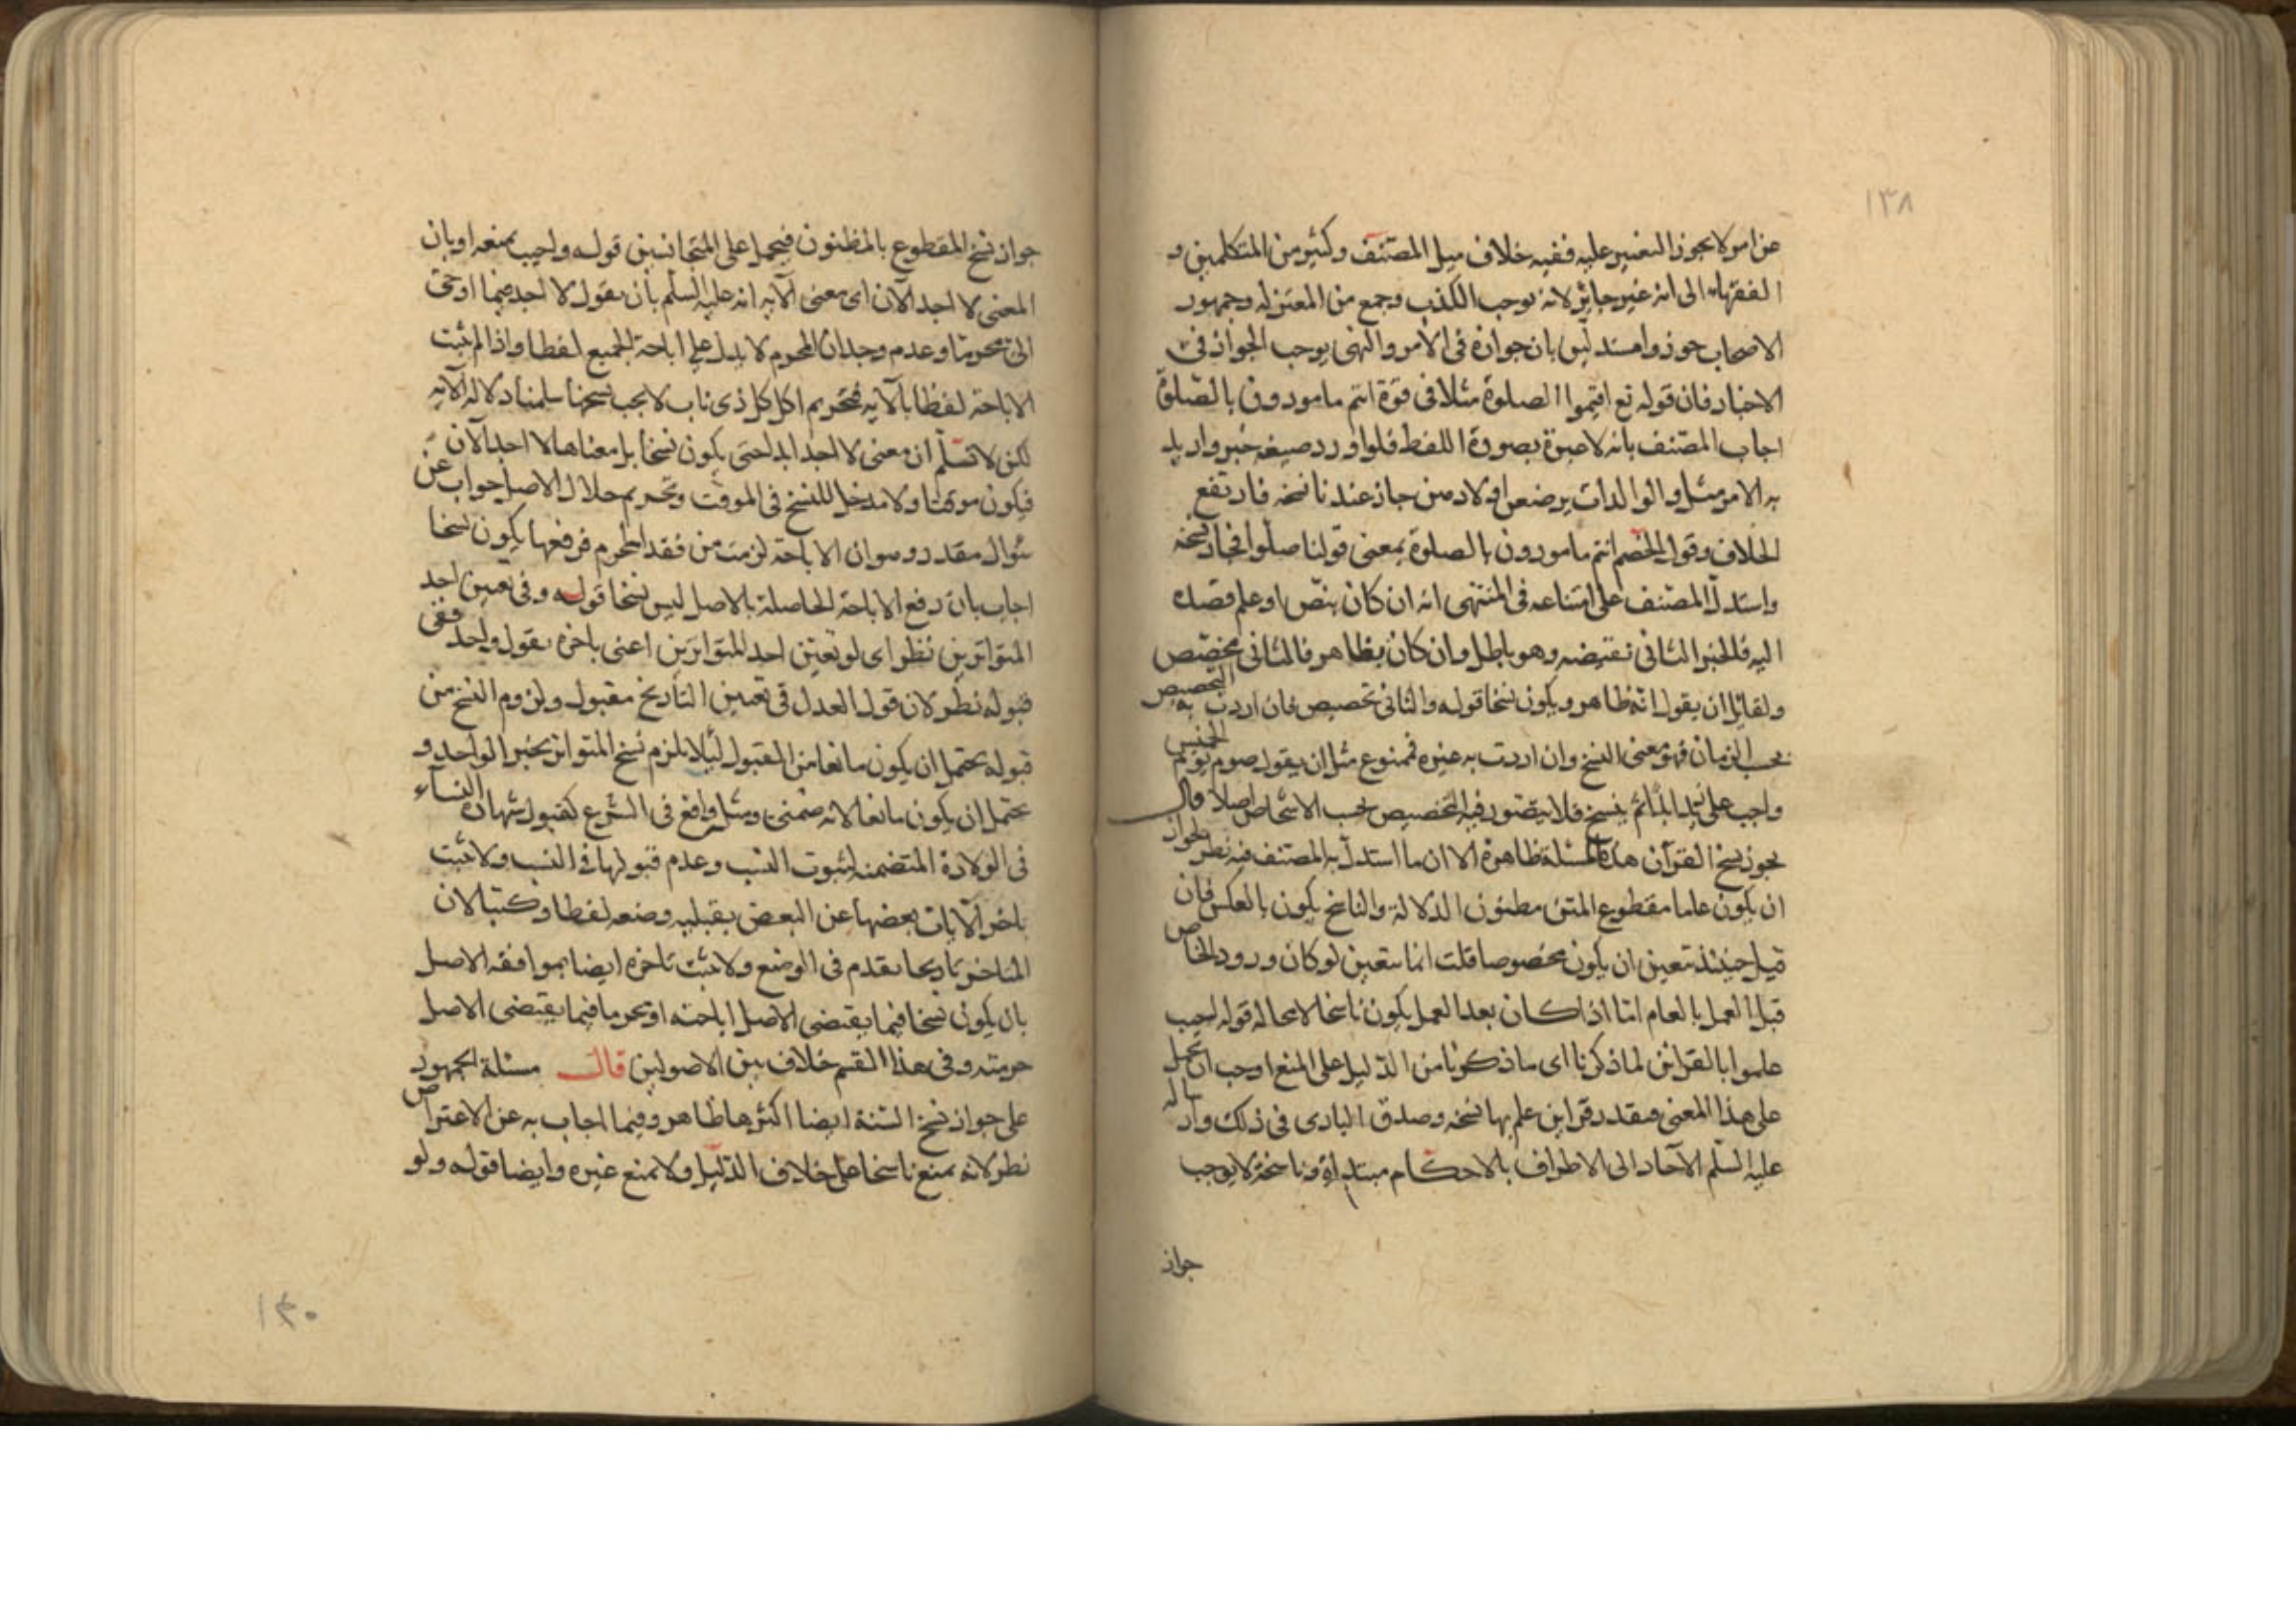 ١٣٨
عن امر لا يجوز التغيير عليه ففيه خلاف ميل المصنف وكثير من المتكلمين و
الفقهاء الى انه غير جايز لانه يوجب الكذب وجمع من المعتزله وجمهور
الاصحاب جوزوا مستدلين بان جوازه فى الامر والنهى يوجب الجواز فى
الاخبار فان قوله تع اقيموا الصلوة مثلا فى قوة انتم مامورون بالصلوة
اجاب المصنف بانه لا عبرة بصورة اللفظ فلو اورد صيغه خبر واريد
به الامر مثل والوالدات يرضعن اولادهن جاز عندنا نسخه فارتفع
الخلاف وقول الخصم انتم مامورون بالصلوة بمعنى قولنا صلوا فجاز نسخه
واستدل المصنف على امتناعه فى المنتهى انه ان كان بنص او علم قصده
اليه فالخبر الثانى نقيضه وهو باطل وان كان بظاهر فالثانى مخصص
ولقائل ان يقول انه ظاهر ويكون نسخا قوله والثانى تخصيص فان اردت به التخصيص
بحسب الزمان فهو معنى النسخ وان اردت به غيره فممنوع مثل ان يقول صوم يوم الخميس
واجب على زيد الدائم ينسخ فلا يتصور فيه التخصيص بحسب الاشخاص اصلا قال
يجوز نسخ القرآن هذه المسئلة ظاهرة الا ان ما استدل به المصنف فيه نظر لجواز
ان يكون عاما مقطوع المتن مظنون الدلالة والناسخ يكون بالعكس فان
قيل حينئذ تعين ان يكون مخصوصا قلت انما يتعين لو كان ورود الخاص
قبل العمل بالعام امّا اذا كان بعد العمل يكون ناسخا لا محالة قوله اجيب
علموا بالقرائن لما ذكرنا اى ما ذكرنا من الدليل على المنع اوجب ان يحمل
على هذا المعنى ويقدر قراين علم بها نسخه وصدق البادى فى ذلك وارساله
عليه السلم الآحاد الى الاطراف بالاحكام مبتداة وناسخة لا يوجب
جواز
جواز نسخ المقطوع بالمظنون فيحمل على المتجانسين قوله واجيب بمنعه او بان
المعنى لا اجد الآن اى معنى الآيه انه عليه السلم بان يقول لا اجد فيما اوحى
الىّ محرما وعدم وجدان المحرم لا يدل على اباحة الجميع لفظا واذا لم يثبت
الاباحة لفظا بالآيه فتحريم اكل كل ذى ناب لا يجب نسخها سلمنا دلاله الآيه
لكن لا نسلم ان معنى لا اجد ابدا حتى يكون نسخا بل معناها لا اجد الآن
فيكون موقتا ولا مدخل للنسخ فى الموقت وتحريم حلال الاصل جواب عن
سؤال مقدر وهو ان الاباحة لزمت من فقد المحرم فرفعها يكون نسخا
اجاب بان رفع الاباحة الحاصلة بالاصل ليس نسخا قوله وفى تعيين احد
المتواترين نظر اى لو تعين احد المتواترين اعنى باخره بقول واحد ففى
قبوله نظر لان قول العدل فى تعيين التاريخ مقبول ولزوم النسخ من
قبوله يحتمل ان يكون مانعا من القبول لئلا يلزم نسخ المتواتر بخبر الواحد و
يحتمل ان يكون مانعا لانه ضمنى ومثل واقع فى الشرع كقبول شهادة النساء
فى الولادة المتضمنه لثبوت النسب وعدم قبولها فى النسب ولا يثبت
باخر الآيات بعضها عن البعض بقبليه وضعه لفظا وكتبا لان
المتاخر تاريخا يقدم فى الوضع ولا يثبت تاخره ايضا بموافقه الاصل
بان يكون نسخا فيما يقتضى الاصل اباحته او يحرما فيما يقتضى الاصل
حرمته وفى هذا القسم خلاف بين الاصولين قال مسئلة الجمهور
على جواز نسخ السنة ايضا اكثرها ظاهر وفيما اجاب به عن الاعتراض
نظر لانه يمنع ناسخا على خلاف الدليل ولا يمنع غيره وايضا قوله ولو
١٤٠